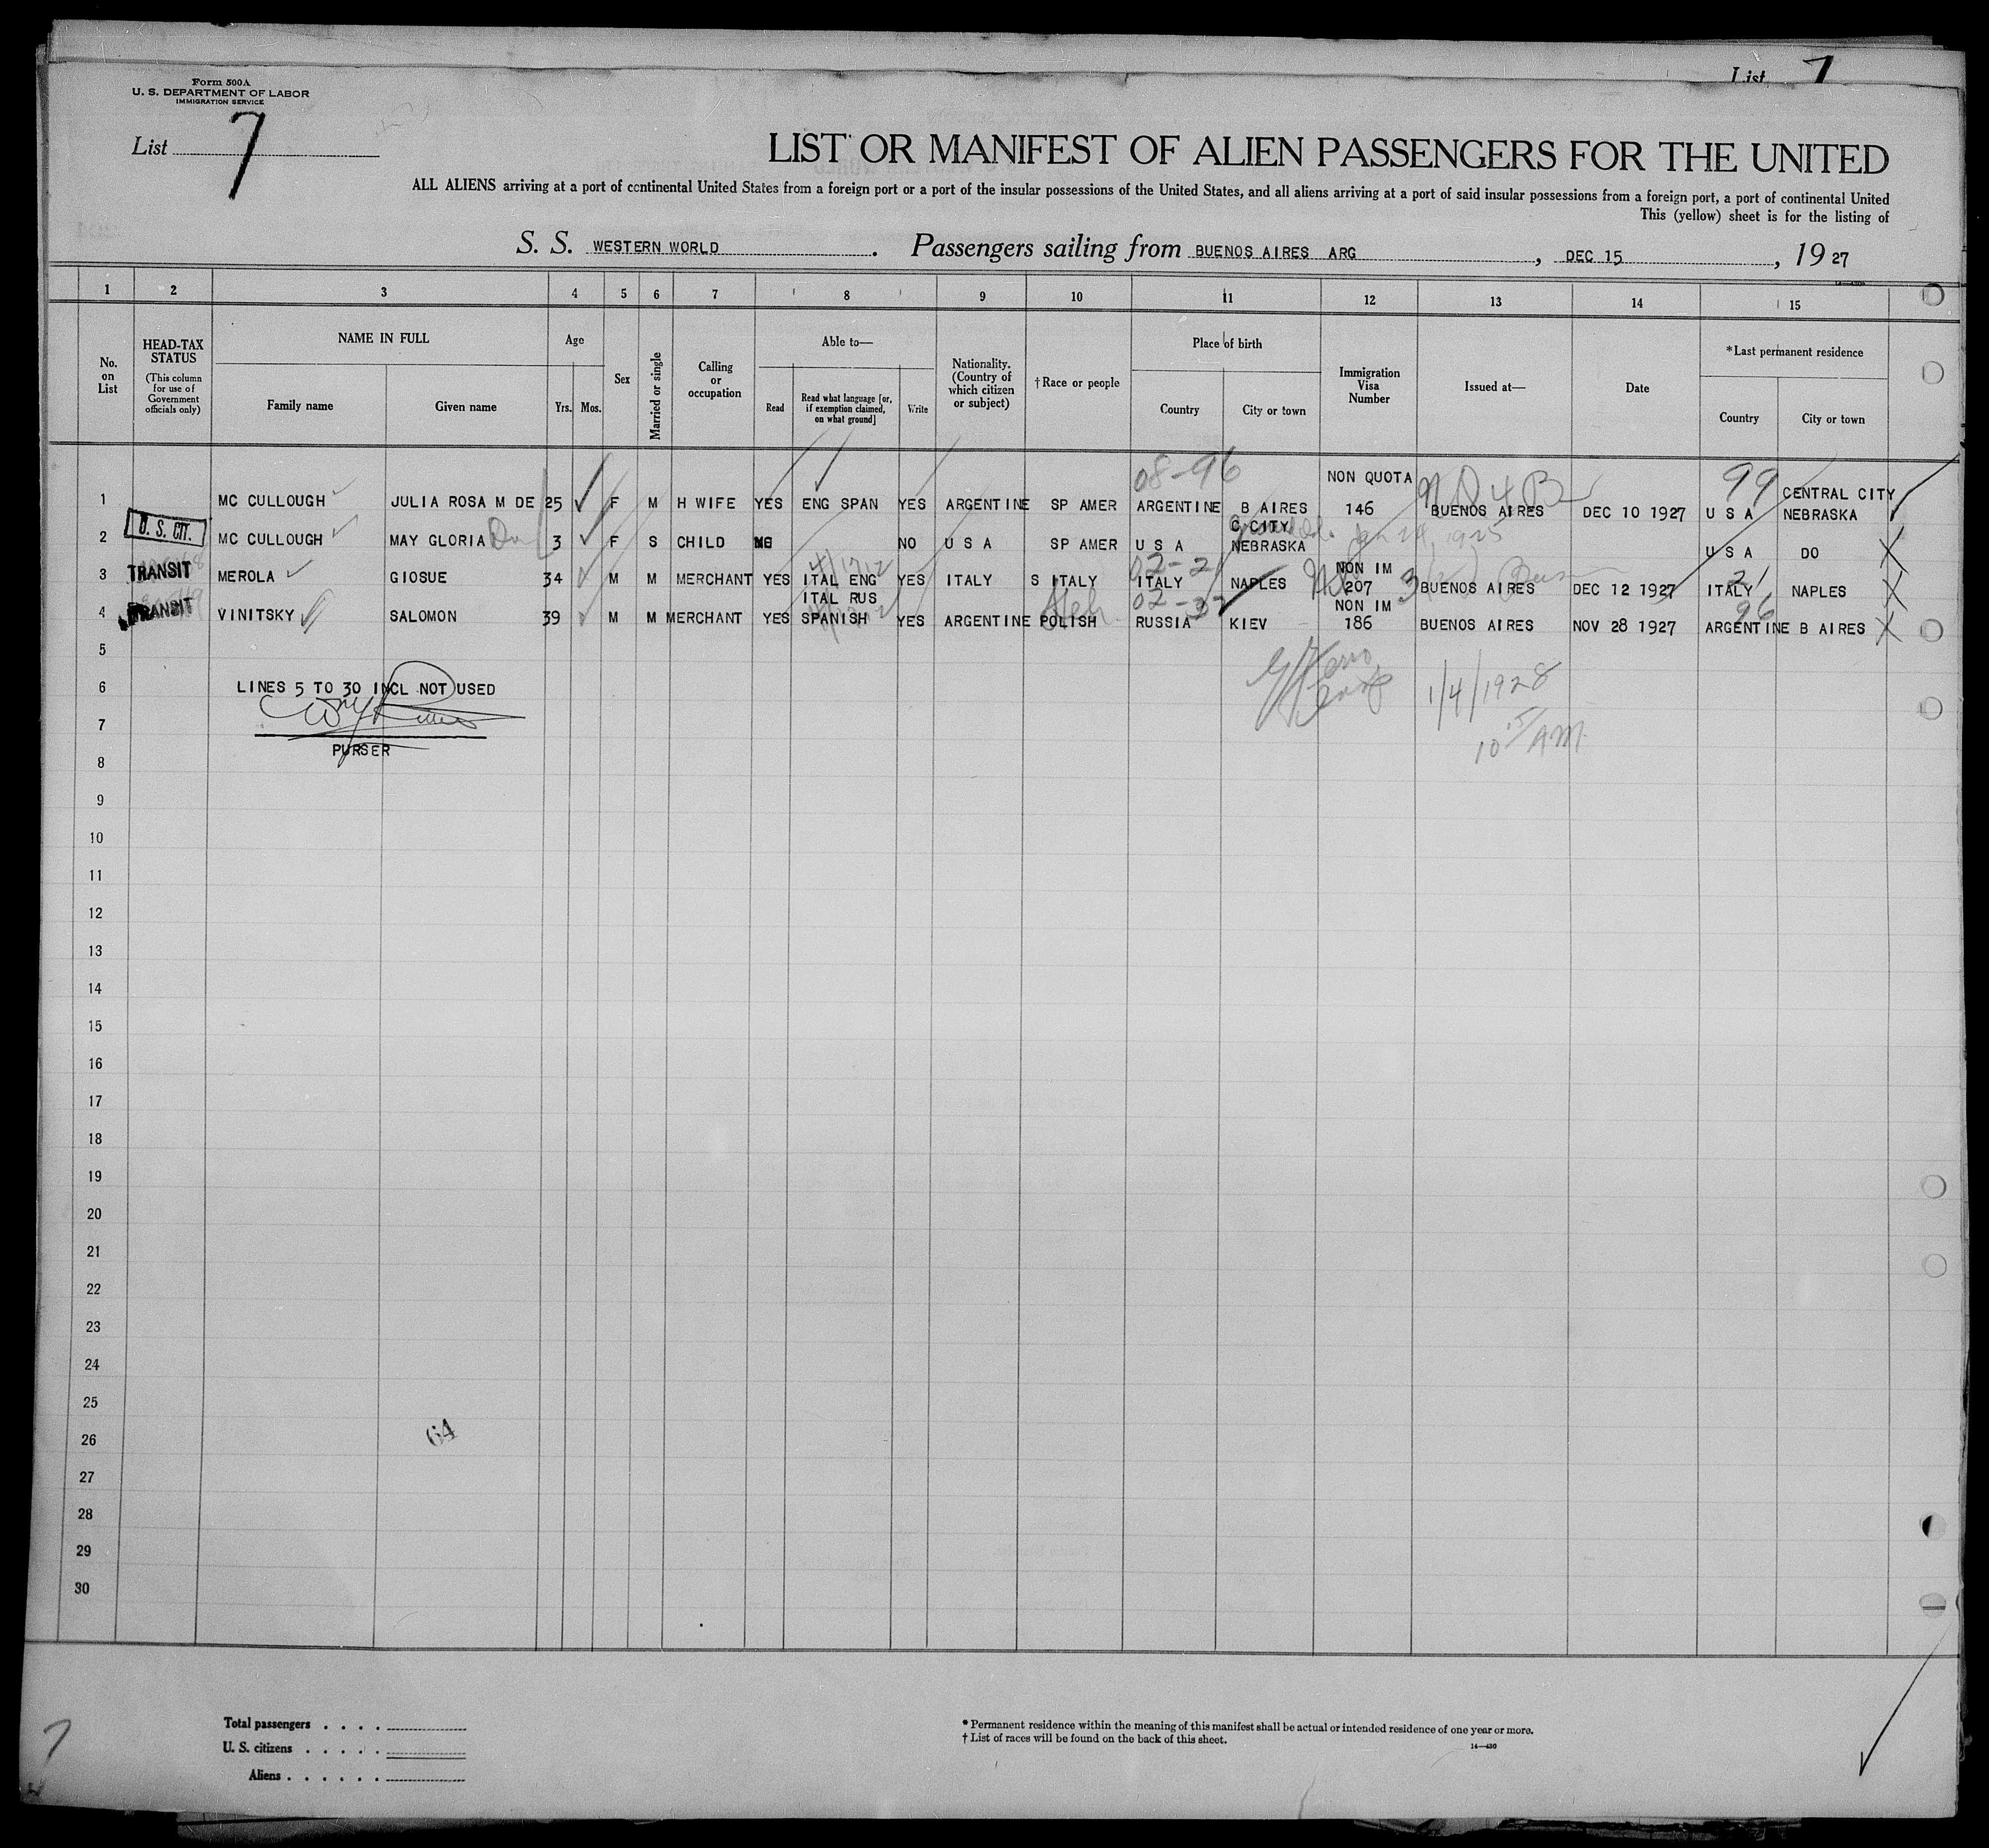 List 7
Form 500A
U. S. DEPARTMENT OF LABOR
IMMIGRATION SERVICE
List 7
LIST OR MANIFEST OF ALIEN PASSENGERS FOR THE UNITED
ALL ALIENS arriving at a port of continental United States from a foreign port or a port of the insular possessions of the United States, and all aliens arriving at a port of said insular possessions from a foreign port, a port of continental United
This (yellow) sheet is for the listing of
S. S. WESTERN WORLD . Passengers sailing from BUENOS AIRES ARG , DEC 15 , 19 27
1 2 3 4 5 6 7 8 9 10 11 12 13 14 15
No. on List
HEAD-TAX STATUS
(This column for use of Government officials only)
NAME IN FULL
Family name Given name
Age
Yrs. Mos.
Sex
Married or single
Calling or occupation
Able to—
Read Read what language [or, if exemption claimed, on what ground] Write
Nationality. (Country of which citizen or subject)
†Race or people
Place of birth
Country City or town
Immigration Visa Number
Issued at—
Date
*Last permanent residence
Country City or town
08-96 NON QUOTA 99 CENTRAL CITY
1 MC CULLOUGH JULIA ROSA M DE 25 F M H WIFE YES ENG SPAN YES ARGENTINE SP AMER ARGENTINE B AIRES 146 BUENOS AIRES DEC 10 1927 U S A NEBRASKA
U. S. CIT. C CITY Jan 24, 1925
2 MC CULLOUGH MAY GLORIA 3 F S CHILD NO NO U S A SP AMER U S A NEBRASKA U S A DO
02-21 NON IM 21
3 TRANSIT MEROLA GIOSUE 34 M M MERCHANT YES ITAL ENG YES ITALY S ITALY ITALY NAPLES 207 BUENOS AIRES DEC 12 1927 ITALY NAPLES
ITAL RUS 02-37 NON IM 96
4 TRANSIT VINITSKY SALOMON 39 M M MERCHANT YES SPANISH YES ARGENTINE POLISH RUSSIA KIEV 186 BUENOS AIRES NOV 28 1927 ARGENTINE B AIRES
5
6 LINES 5 TO 30 INCL NOT USED 1/4/1928
7
PURSER 10 15 AM
8
9
10
11
12
13
14
15
16
17
18
19
20
21
22
23
24
25
64
26
27
28
29
30
7
Total passengers . . . .
U. S. citizens . . . . .
Aliens . . . . . .
* Permanent residence within the meaning of this manifest shall be actual or intended residence of one year or more.
† List of races will be found on the back of this sheet.
14—430